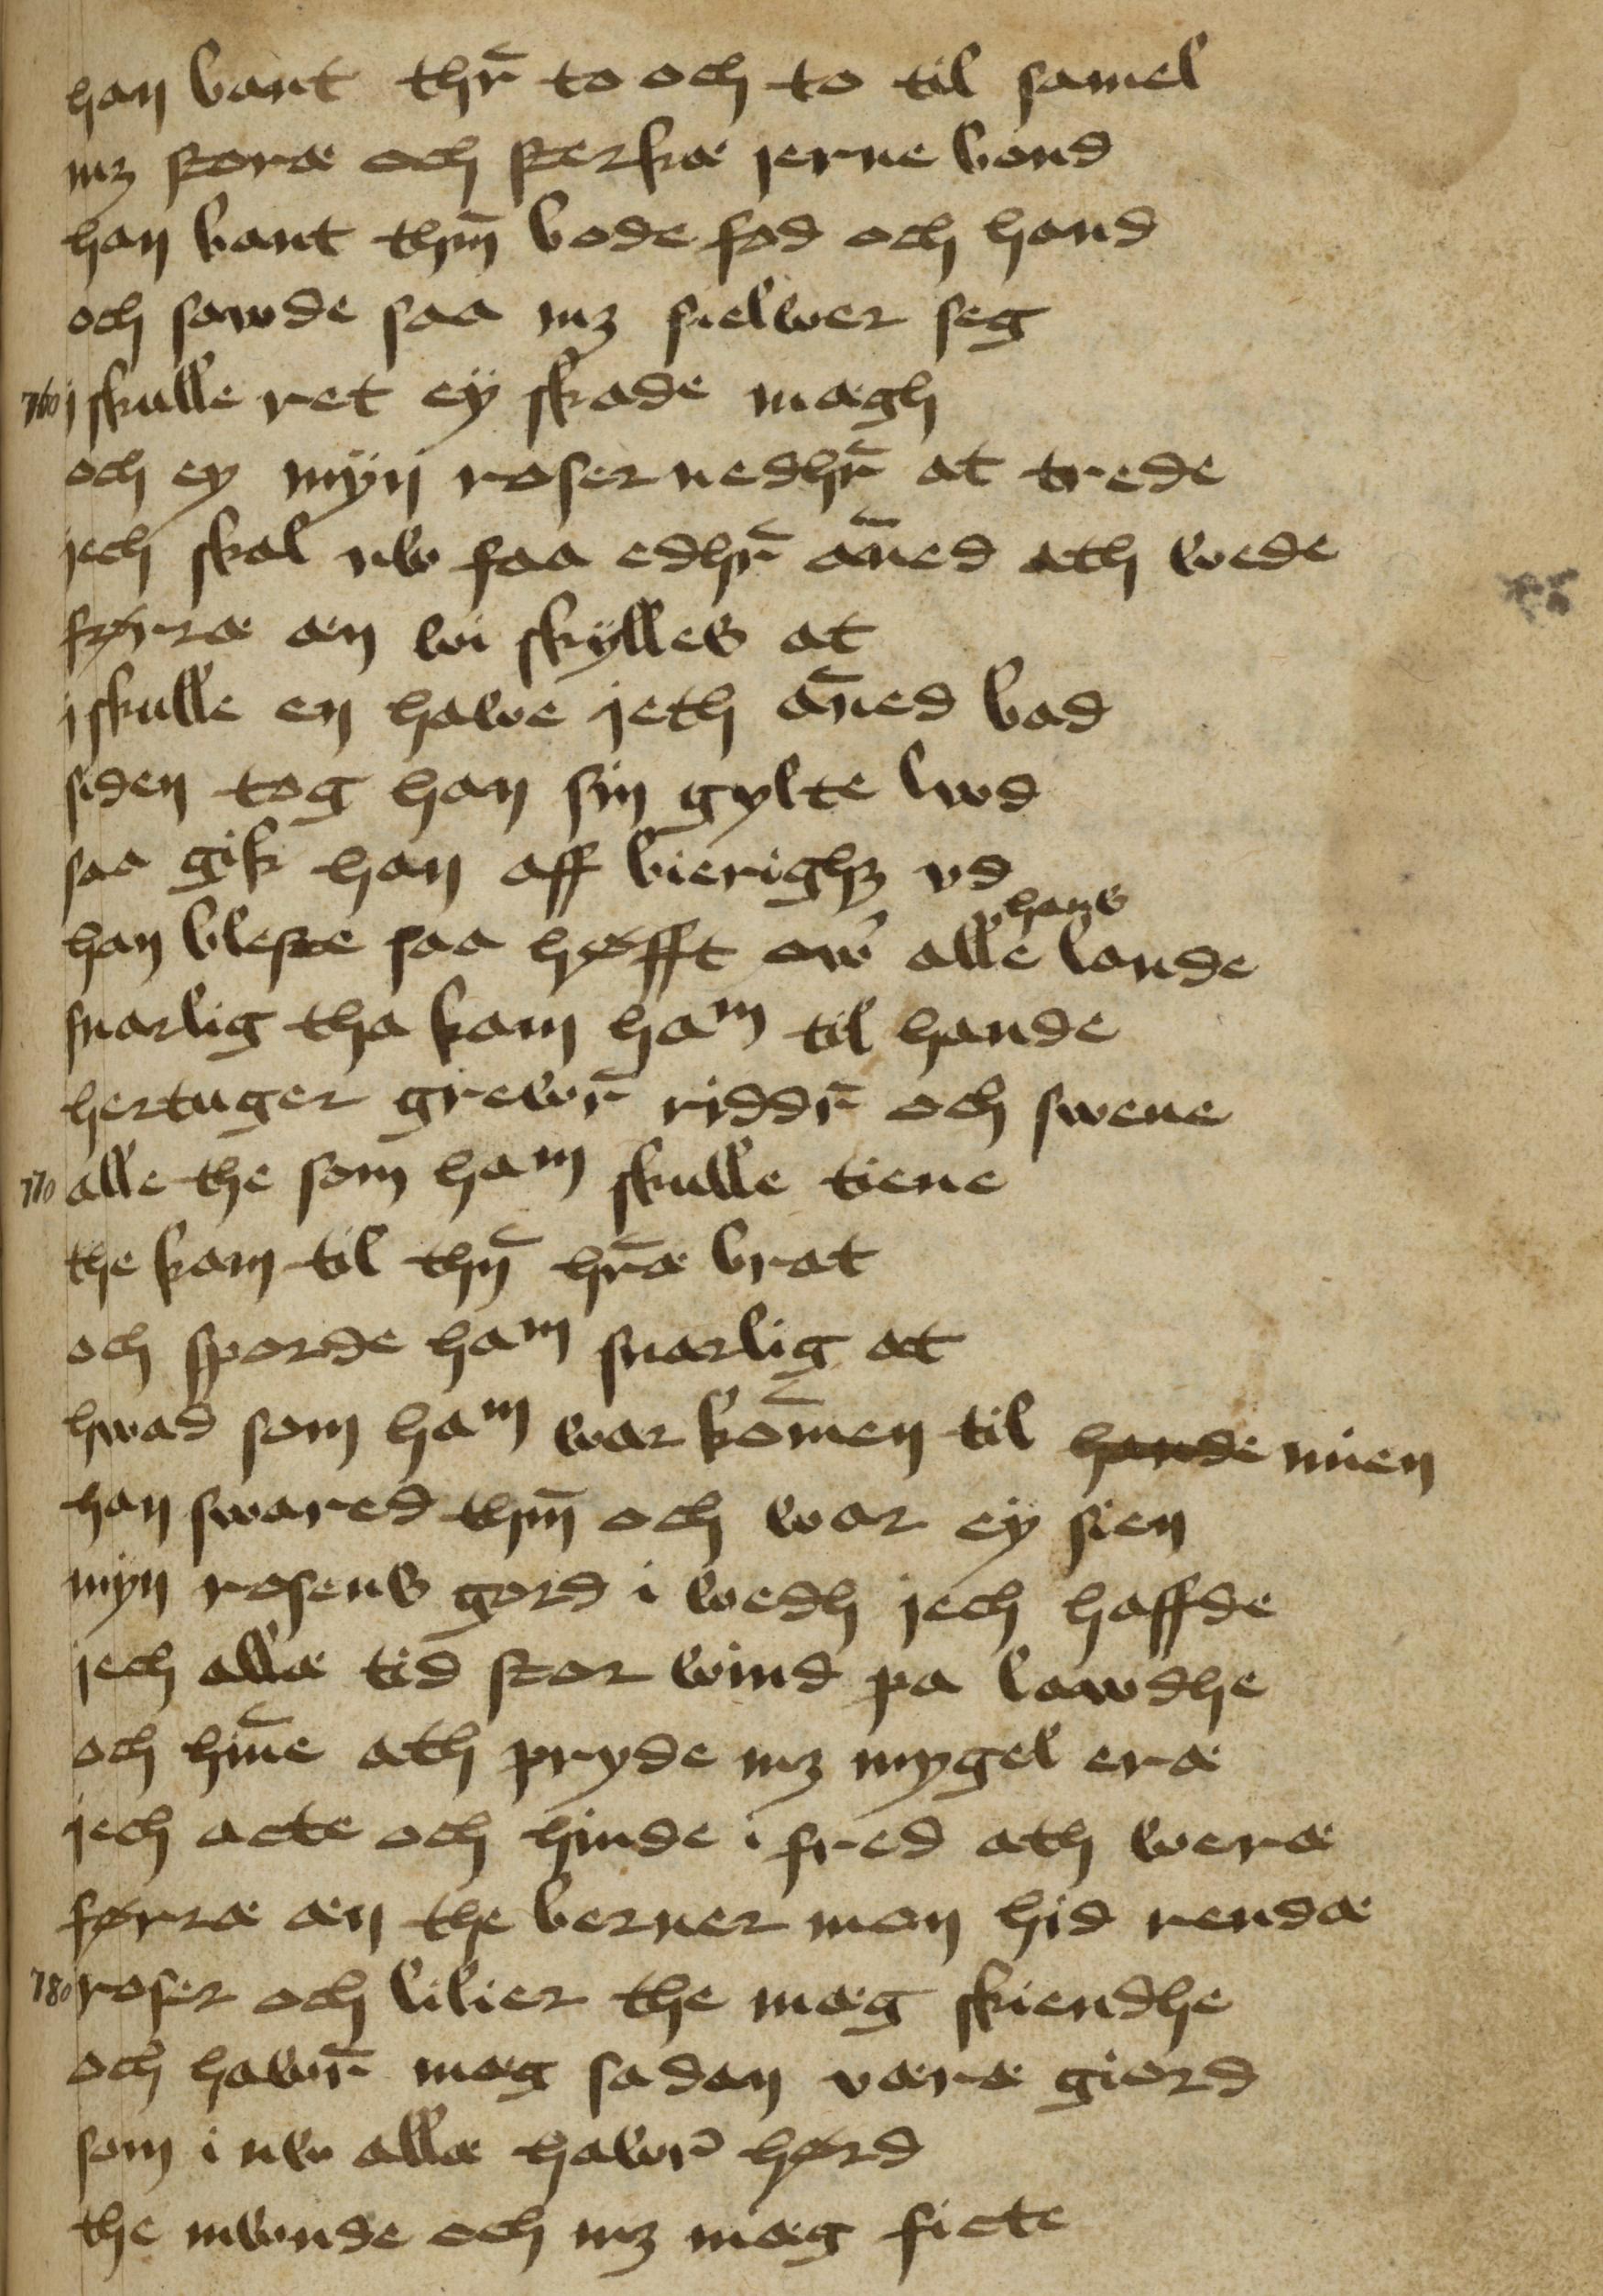 han bant thr̄ to och to til samel
mꝫ storæ och sterkæ jerne bond
han bant thm̄ bode fod och hand
och sawde saa mꝫ sielwer seg
760 j skulle ret eÿ skade mægh
och ey mÿn roser nedhr̄ at trede
jech skal nw faa edhr̄ an̄ed ath wede
førræ æn wi skÿlles at
j skulle en hawe jeth an̄ed bad
siden tog han sin gylte lwd
saa gik han aff bierighꝫ vd
han bleste saa høfft ow̄ alle hans lande
snarlig tha kam haᵐ til hande
hertuger grewr̄ riddr̄ och swene
770 alle the som haᵐ skulle tiene
the kam til thn̄ hr̄æ brat
och sporde haᵐ snarlig at
hwad som haᵐ war kom̄en til hande mien
han swared thm̄ och war eÿ sien
mÿn rosens gord i wedh jech haffde
jech allæ tid stor wind pa lawdhe
och hm̄e ath pryde mꝫ mygel eræ
jech acte och hinde i fred ath weræ
førræ æn the berner mon hid rendæ
780 roser och lilier the mæg skiendhe
och hawr̄ mæg sadan væræ giord
som i nw allæ hawr̄ hørd
the mwnde och mꝫ mæg ficte